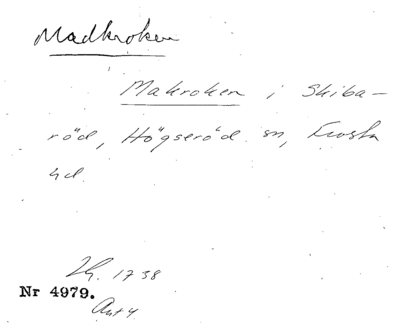 Madkroken
Makroken i Skiba-
röd, Högseröd sn, Frosta
hd.
Zh. 1738
Nr 4979.
Ant 4